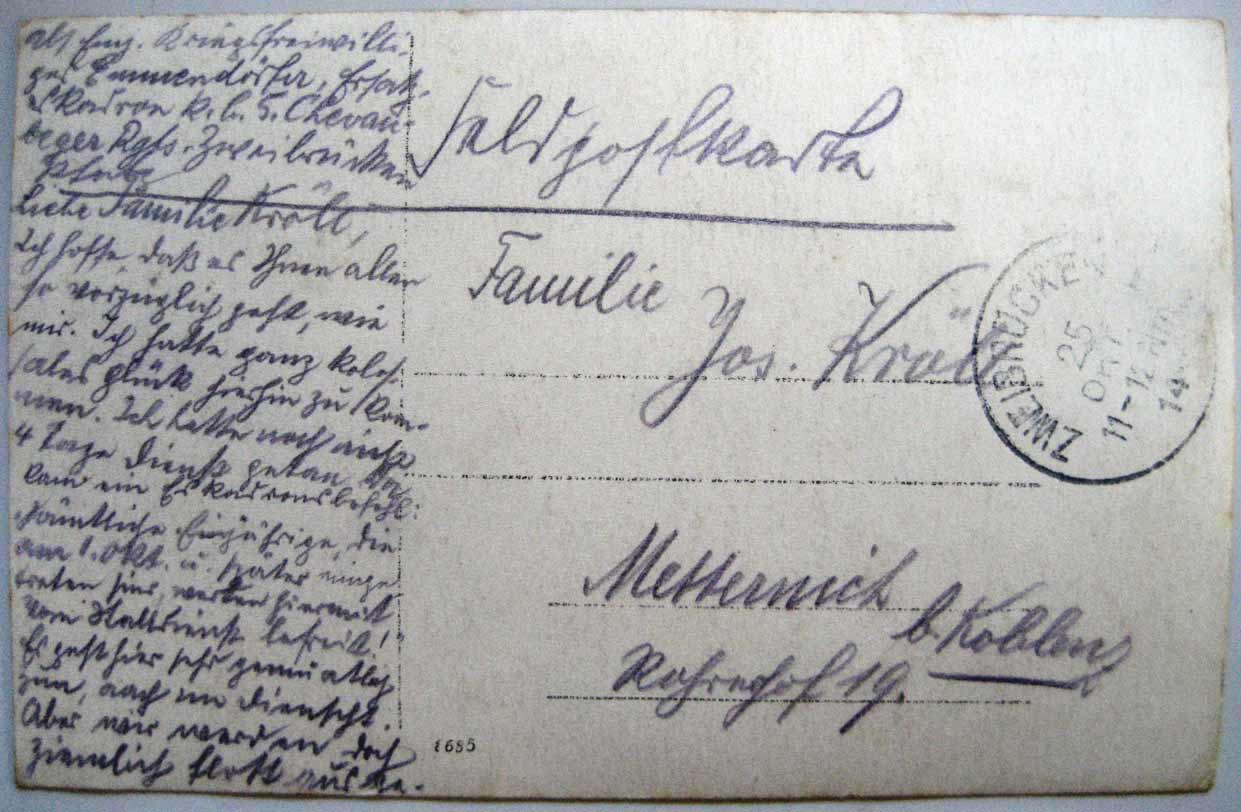 als Einj. Kriegsfreiwilli-
ger Emmendörfer, Ersatz-
eskadron k. b. 5. Chevau-
leger Rgts. Zweibrücken
Pfalz
Liebe Familie Kröll,
Ich hoffe, daß es Ihnen allen
so vorzüglich geht, wie
mir. Ich hatte ganz kolos-
sales Glück hierhin zu kom-
men. Ich hatte noch nicht
4 Tage Dienst getan, da
kam ein Eskadronsbefehl:
"Sämtliche Einjährige, die
am 1. Okt. u. später einge-
treten sind, werden hiermit
vom Stalldienst befreit!"
Es geht hier sehr gemütlich
zu, auch im Dienscht.
Aber wir werden doch
ziemlich flott ausge-
Feldpostkarte
Familie
Jos. Kröll
Metternich
b. Koblenz
Rohrerhof 19.
ZWEIBRÜCKEN
25 OKT
11-12 Nm
14
1685